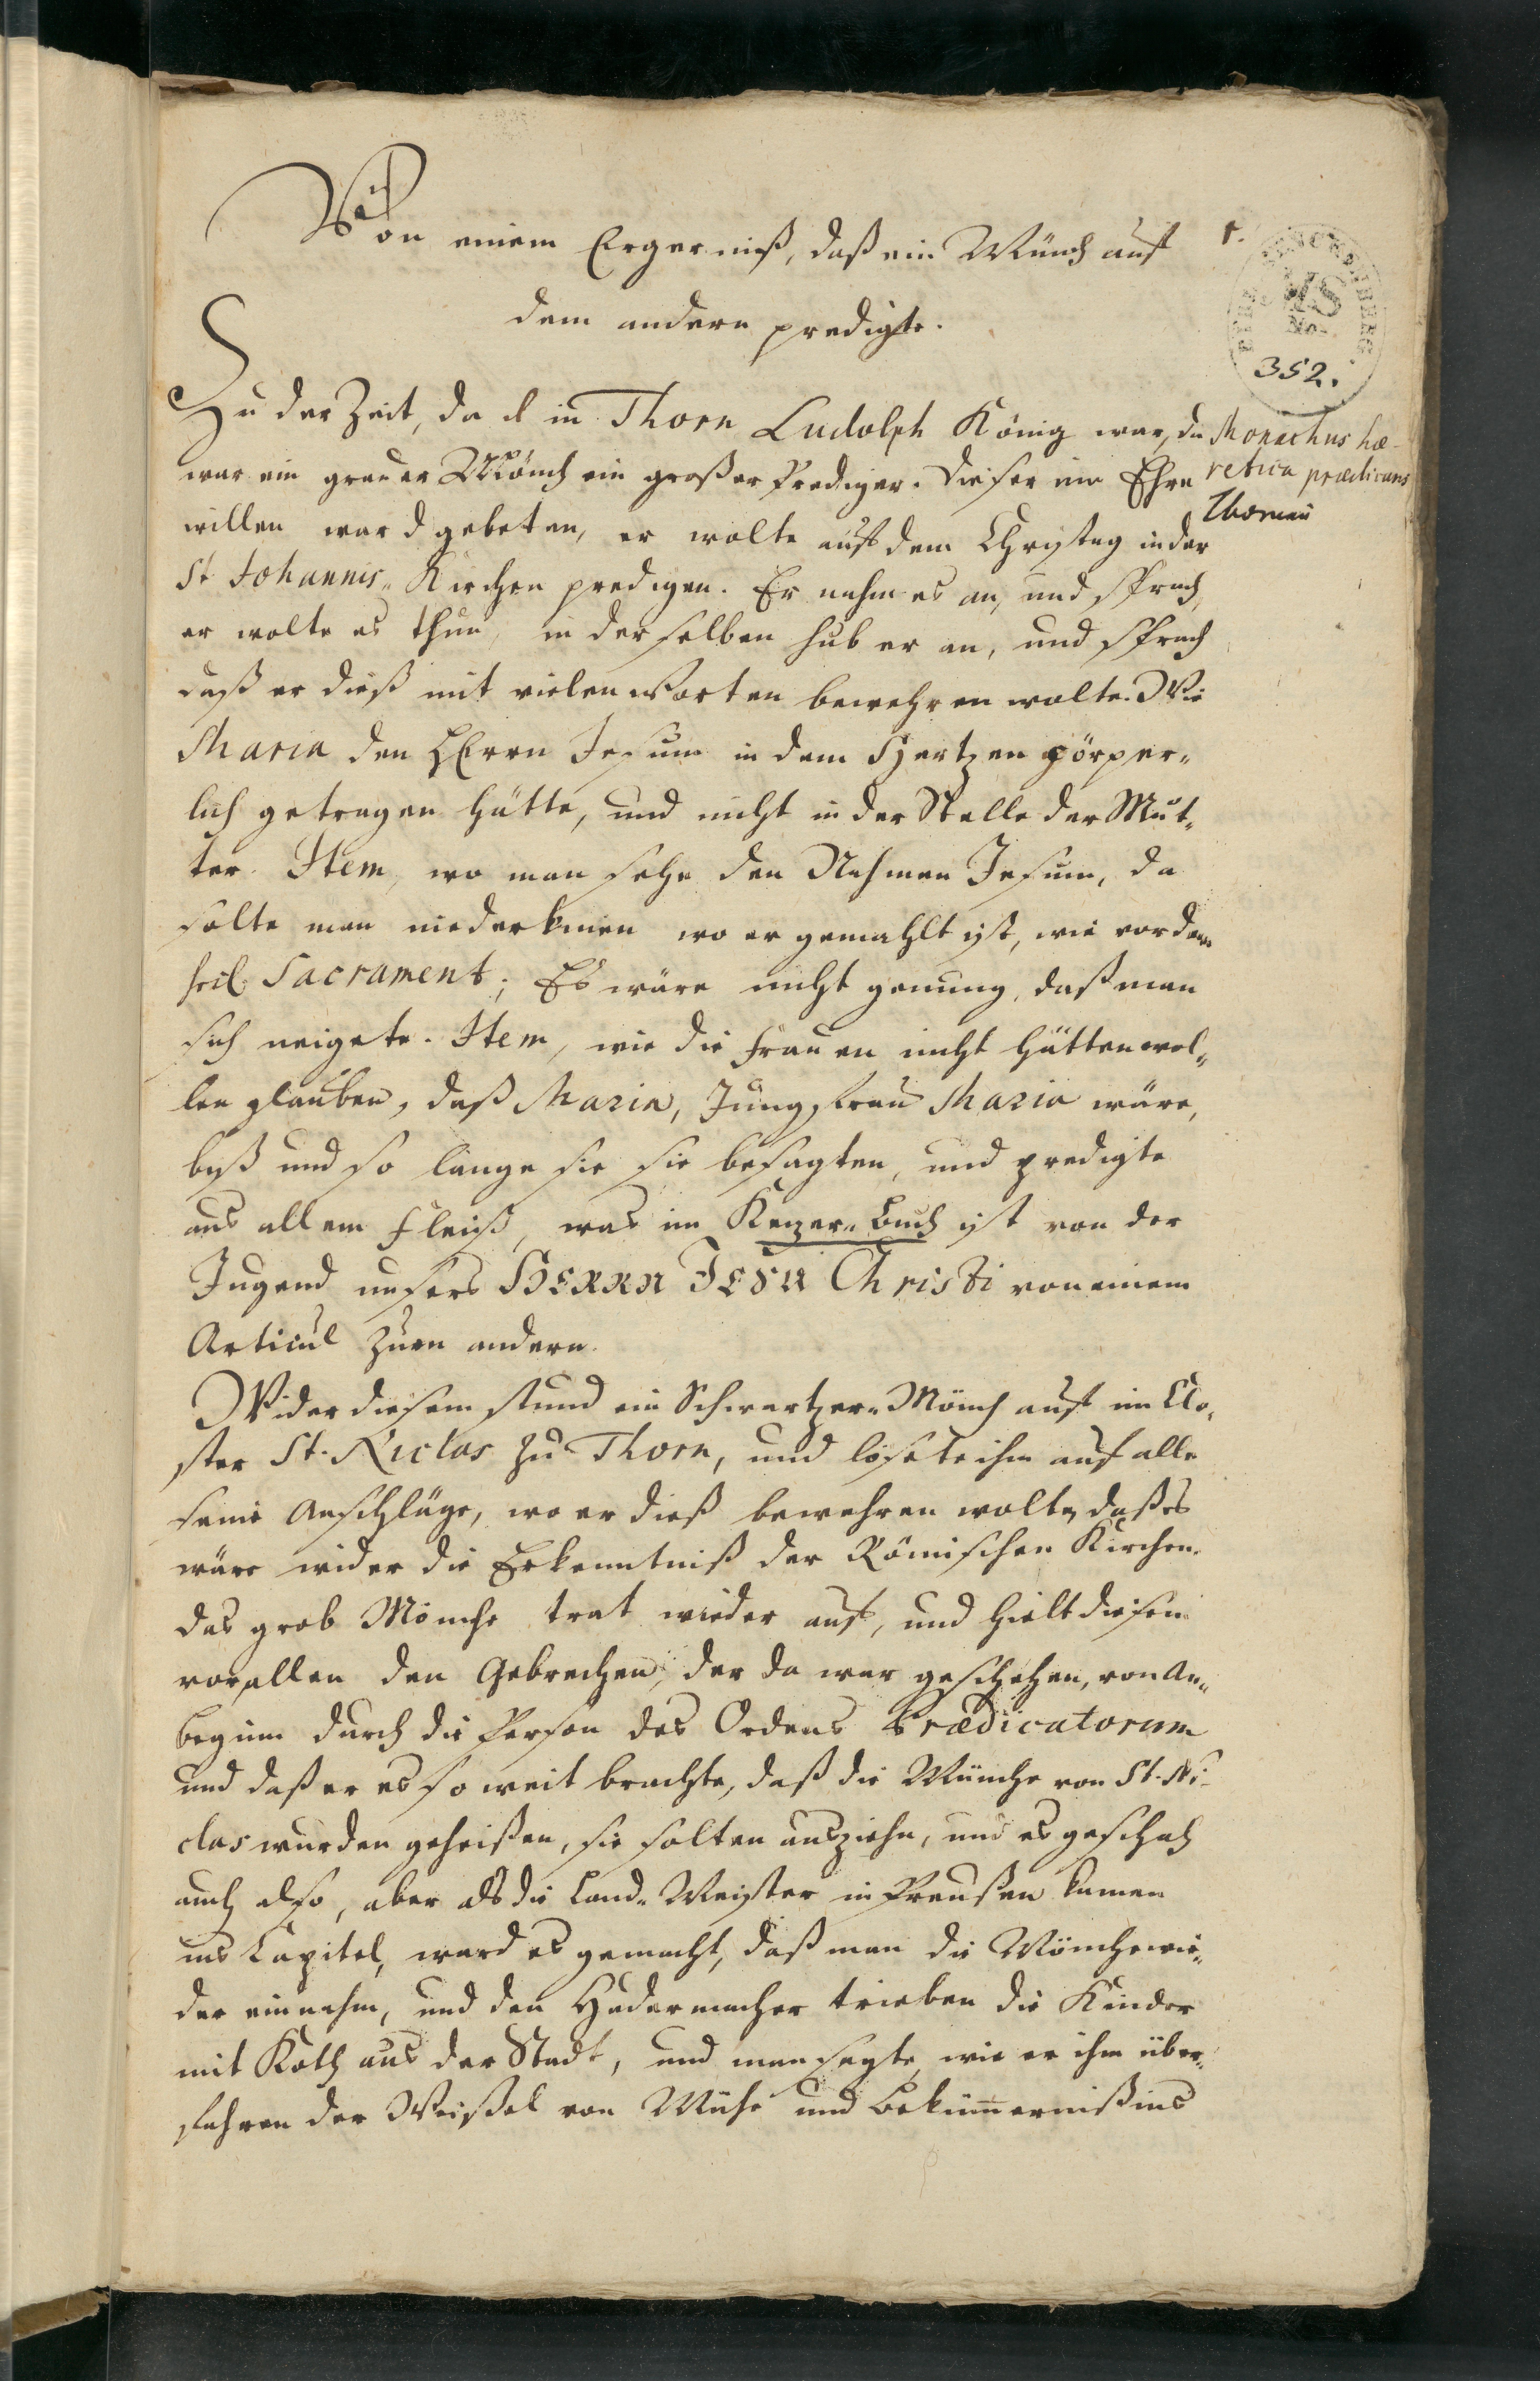 Von einem Ergerniß, daß ein Münch auf
1.
dem andern predigte.
352.
Zu der Zeit, da in Thorn Ludolph König war, da
Monachus hæ-
war ein grauer Mönch ein großer Prediger. Dieser um Ehre
retica prædicans
willen ward gebeten, er wolte auf dem Christag in der
Thorunii
St Johannis-Kirchen predigen. Er nahm es an, und sprach,
er wolte es thun, in derselben hub er an, und sprach
daß er dieß mit vielen Worten bewehren wolte. Wie
Maria den HErrn Jesum in dem Hertzen görper-
lich getragen hätte, und nicht in der Stelle der Mut-
ter. Item, wo man sehe den Nahmen Jesum, da
solte man niederknien wo er gemahlt ist, wie vor dem
heil. Sacrament; Es wäre nicht genung, daß man
sich neigete. Item, wie die Frauen nicht hätten wol-
len glauben, daß Maria, Jungfrau Maria wäre,
biß und so lange sie sie besagten, und predigte
aus allem Fleiß, was im Kezer-Buch ist von der
Jugend unsers HERRN JESU Christi von einem
Articul zum andern.
Wider diesem stund ein Schwartzer-Mönch auf im Clo-
ster St. Niclas zu Thorn, und lösete ihm auf alle
seine Anschläge, wo er dieß bewehren wolte, daß es
wäre wider die Erkenntniß der Römischen Kirchen.
Das grob Mönche trat wieder auf, und hielt diesem
vor allen den Gebrechen, der da war geschehen, von An-
beginn durch die Person des Ordens Prædicatorum
und daß er es so weit brachte, daß die Münche von St. Ni-
clas wurden geheißen, sie solten ausziehn, und es geschah
auch also, aber als die Land-Meister in Preußen kamen
ins Capitel, ward es gemacht, daß man die Mönche wie-
der einnahm, und den Hadermacher trieben die Kinder
mit Koth aus der Stadt, und man sagte, wie er ihm über-
fahren der Weißel von Mühe und Bekümmerniß ins